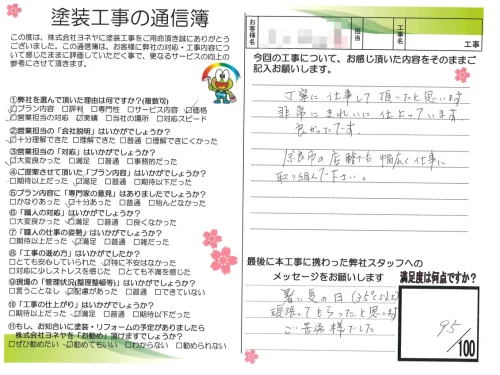 塗装工事の通信簿
この度は、株式会社ヨネヤをご用命頂き誠にありがとう
ございました。この通信簿は、お客様に弊社の対応・工事内容につ
いて感じたままに評価していただく事で、更なるサービスの向上の
参考にさせて頂きます。
①弊社を選んで頂いた理由は何ですか?(複数可)
□プラン内容 □評判 □専門性 □サービス内容 □価格
□営業担当の対応 □実績 □当社の場所 □対応スピード
②営業担当の「会社説明」はいかがでしょうか?
□十分理解できた □理解できた □普通 □理解できにくかった
③営業担当の「対応」はいかがでしょうか?
□大変良かった □満足 □普通 □事務的だった
④ご提案させて頂いた「プラン内容」はいかがでしょうか?
□期待以上だった □満足 □普通 □期待以下だった
⑤プラン内容に「専門家の意見」はありましたでしょうか?
□かなりあった □十分あった □普通 □殆んどなかった
⑥「職人の対応」はいかがでしょうか?
□大変良かった □満足 □普通 □良くなかった
⑦「職人の仕事の姿勢」はいかがでしょうか?
□期待以上だった □満足 □普通 □雑だった
⑧「工事の進め方」はいかがでしたか?
□とても安心していられた □特に不安はなかった
□対応に少しストレスを感じた □とても不満を感じた
⑨現場の「管理状況(整理整頓等)」はいかがでしょうか?
□言うことなし □配慮があった □普通 □できていない
⑩「工事の仕上がり」はいかがでしょうか?
□期待以上だった □満足 □普通 □期待以下だった
⑪もし、お知合いに塗装・リフォームの予定がありましたら
株式会社ヨネヤを「お勧め」頂けますでしょうか?
□ぜひ勧めたい □勧めてもいい □わからない □勧められない
お客様名
担当
工事名
工事
今回の工事について、お感じ頂いた内容をそのままご
記入お願いします。
丁寧に仕事して頂いたと思います
非常にきれいに仕上っています
良かったです
奈良市の店舗も幅広く仕事に
取り組んで下さい。
最後に本工事に携わった弊社スタッフへの
メッセージをお願いします
暑い夏の日(35℃以上)
頑張ってもらったと思います
ご苦労様でした
満足度は何点ですか?
95
/100